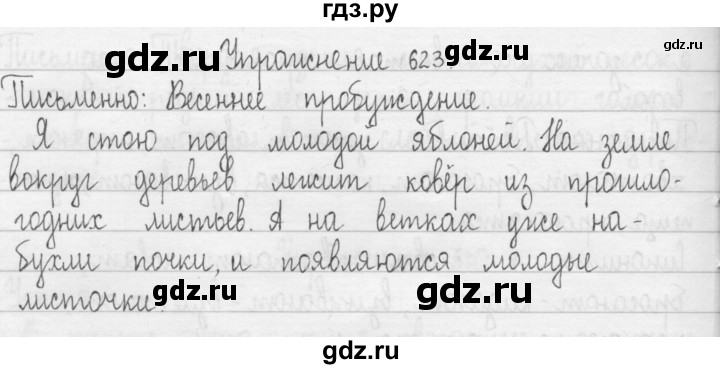 гдз.ру
gdz.ru gdz.ru
Упражнение 623.
Письменно: Весеннее пробуждение.
gdz.ru gdz.ru
Я стою под молодой яблоней. На земле
вокруг деревьев лежит ковёр из прошло-
годних листьев. А на ветках уже на-
бухли почки, и появляются молодые
листочки.
gdz.ru gdz.ru
gdz.ru